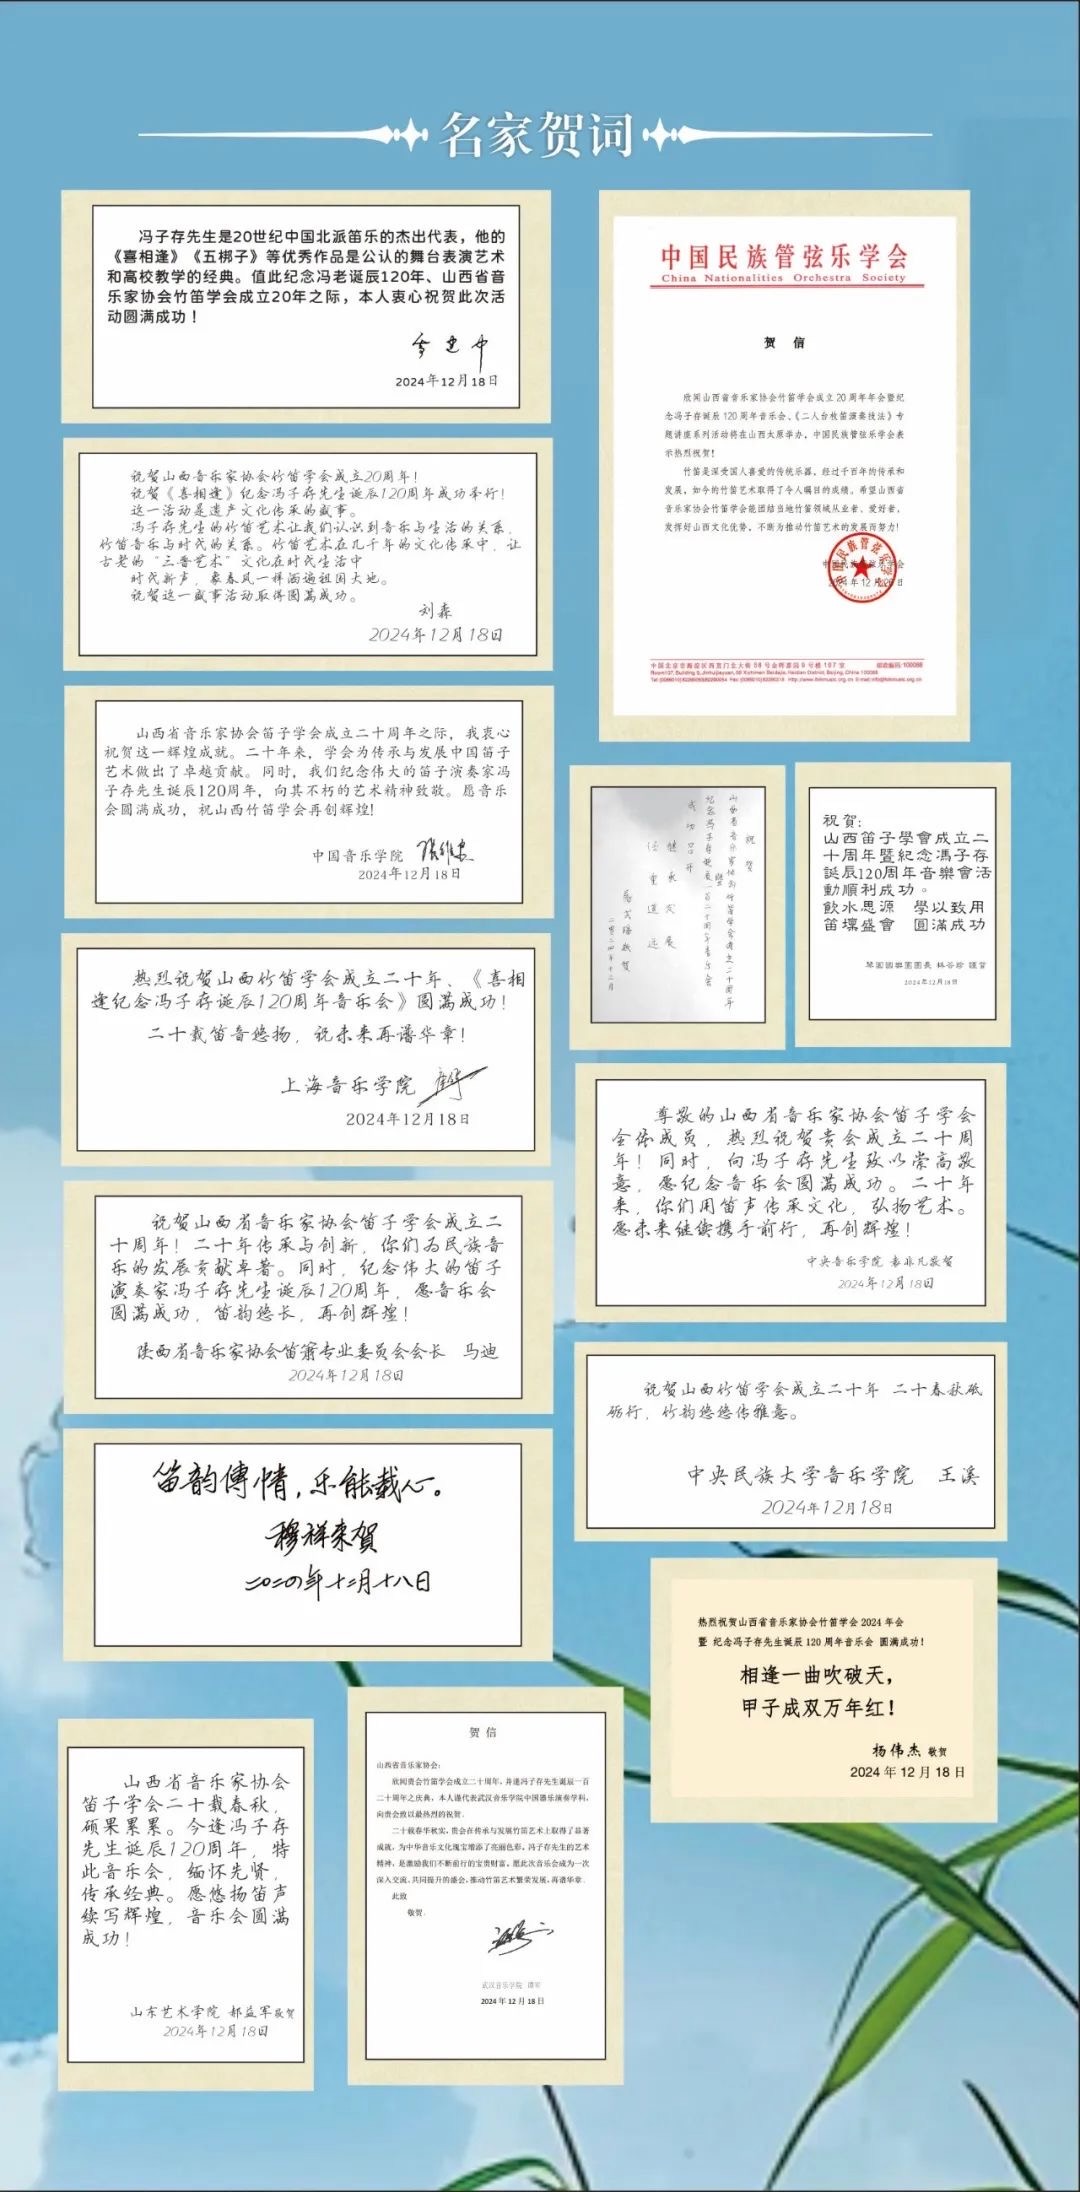 名家贺词
冯子存先生是20世纪中国北派笛乐的杰出代表，他的
《喜相逢》《五梆子》等优秀作品是公认的舞台表演艺术
和高校教学的经典。值此纪念冯老诞辰120年、山西省音
乐家协会竹笛学会成立20年之际，本人衷心祝贺此次活
动圆满成功！
2024年12月18日
祝贺山西音乐家协会竹笛学会成立20周年！
祝贺《喜相逢》纪念冯子存先生诞辰120周年成功举行！
这一活动是遗产文化传承的盛事。
冯子存先生的竹笛艺术让我们认识到音乐与生活的关系，
竹笛音乐与时代的关系。竹笛艺术在几千年的文化传承中，让
古老的“三晋艺术”文化在时代生活中
时代新声，象春风一样洒遍祖国大地。
祝贺这一盛事活动取得圆满成功。
刘森
2024年12月18日
山西省音乐家协会笛子学会成立二十周年之际，我衷心
祝贺这一辉煌成就。二十年来，学会为传承与发展中国笛子
艺术做出了卓越贡献。同时，我们纪念伟大的笛子演奏家冯
子存先生诞辰120周年，向其不朽的艺术精神致敬。愿音乐
会圆满成功，祝山西竹笛学会再创辉煌！
中国音乐学院
2024年12月18日
热烈祝贺山西竹笛学会成立二十年、《喜相
逢纪念冯子存诞辰120周年音乐会》圆满成功！
二十载笛音悠扬，祝未来再谱华章！
上海音乐学院
2024年12月18日
祝贺山西省音乐家协会笛子学会成立二
十周年！二十年传承与创新，你们为民族音
乐的发展贡献卓著。同时，纪念伟大的笛子
演奏家冯子存先生诞辰120周年，愿音乐会
圆满成功，笛韵悠长，再创辉煌！
陕西省音乐家协会笛箫专业委员会会长 马迪
2024年12月18日
笛韵傳情，乐能载心。
穆祥来贺
二〇二四年十二月十八日
山西省音乐家协会
笛子学会二十载春秋，
硕果累累。今逢冯子存
先生诞辰120周年，特
此音乐会，缅怀先贤，
传承经典。愿悠扬笛声
续写辉煌，音乐会圆满
成功！
山东艺术学院 郝益军敬贺
2024年12月18日
中国民族管弦乐学会
China Nationalities Orchestra Society
贺 信
欣闻山西省音乐家协会竹笛学会成立20周年年会暨纪
念冯子存诞辰120周年音乐会、《二人台枚笛演奏技法》专
题讲座系列活动将在山西太原举办，中国民族管弦乐学会表
示热烈祝贺！
竹笛是深受国人喜爱的传统乐器，经过千百年的传承和
发展，如今的竹笛艺术取得了令人瞩目的成绩。希望山西省
音乐家协会竹笛学会能团结当地竹笛领域从业者、爱好者，
发挥好山西文化优势，不断为推动竹笛艺术的发展而努力！
祝贺
山西省音乐家协会竹笛学会成立二十周年
暨
纪念冯子存诞辰一百二十周年音乐会
成功召开
继承发展
任重道远
二零二四年十二月
祝賀：
山西笛子學會成立二
十周年暨紀念馮子存
誕辰120周年音樂會活
動順利成功。
飲水思源 學以致用
笛壇盛會 圓滿成功
琴園國樂團團長 林谷珍 謹賀
2024年12月18日
尊敬的山西省音乐家协会笛子学会
全体成员，热烈祝贺贵会成立二十周
年！同时，向冯子存先生致以崇高敬
意，愿纪念音乐会圆满成功。二十年
来，你们用笛声传承文化，弘扬艺术。
愿未来继续携手前行，再创辉煌！
中央音乐学院 袁非凡敬贺
2024年12月18日
祝贺山西竹笛学会成立二十年 二十春秋砥
砺行，竹韵悠悠传雅意。
中央民族大学音乐学院 王溪
2024年12月18日
热烈祝贺山西省音乐家协会竹笛学会2024年会
暨 纪念冯子存先生诞辰120周年音乐会 圆满成功！
相逢一曲吹破天，
甲子成双万年红！
杨伟杰 敬贺
2024年12月18日
贺 信
山西省音乐家协会：
欣闻贵会竹笛学会成立二十周年，并逢冯子存诞辰一百
二十周年之庆典，本人谨代表武汉音乐学院中国器乐演奏学科，
向贵会致以最热烈的祝贺。
二十载春华秋实，贵会在传承与发展竹笛艺术上取得了显著
成就，为中华音乐文化瑰宝增添了亮丽色彩。冯子存先生的艺术
精神，是激励我们不断前行的宝贵财富。愿此次音乐会成为一次
深入交流、共同提升的盛会，推动竹笛艺术繁荣发展，再谱华章。
此致
敬贺。
武汉音乐学院
2024年12月18日